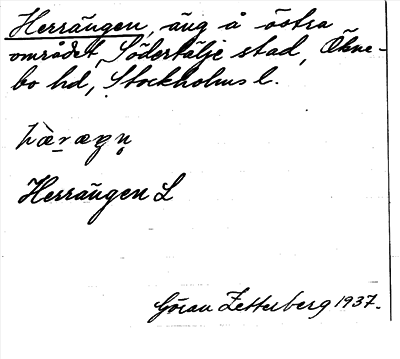 Herrängen, äng å östra
området, Södertälje stad, Ökne-
bo hd, Stockholms l.
hæ̀ræŋn̥
Herrängen L
Göran Zetterberg 1937.